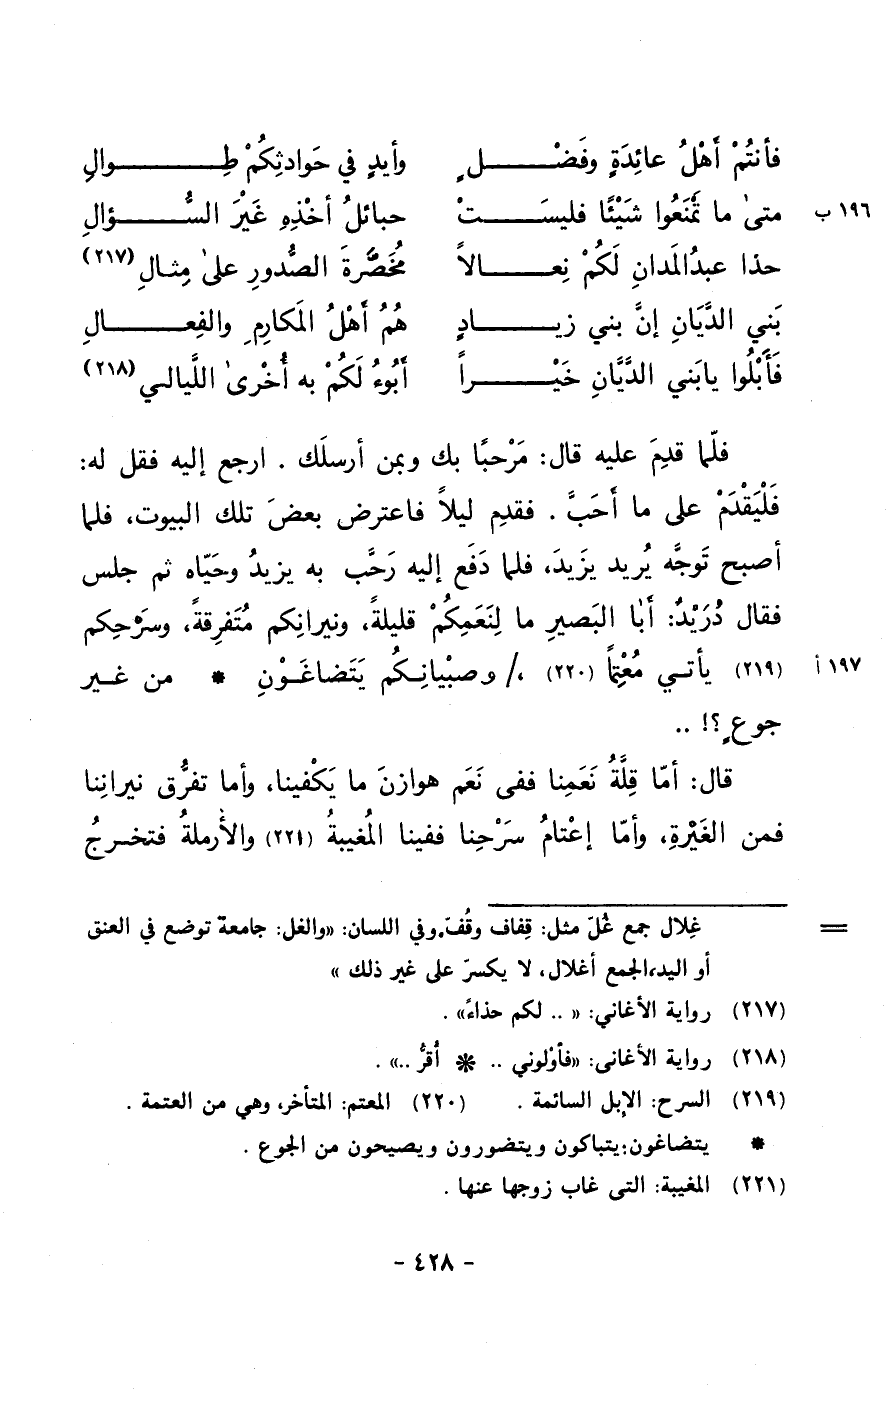 فأنتُمْ أَهْلُ عائِدَةٍ وفَضْلٍ وأيدٍ في حَوادثِكُمْ طِوالِ
١٩٦ ب متىٰ ما تُمْنَعُوا شَيْئًا فليسَتْ حبائلُ أخْذِهِ غَيْرَ السُّؤالِ
حذا عبدُالمَدانِ لَكُمْ نِعالاً مُخَصَّرةَ الصُّدورِ علىٰ مِثالِ (٢١٧)
بَني الدَّيَانِ إنَّ بني زيادٍ هُمُ أَهْلُ المَكارِمِ والفِعالِ
فَأَبْلُوا يابَني الدَّيَّانِ خَيْراً أَبُوءُ لَكُمْ به أُخْرىٰ اللَّيالي (٢١٨)
فلّما قدِمَ عليه قال: مَرْحبًا بك وبمن أرسلَك . ارجع إليه فقل له:
فَلْيَقْدَمْ على ما أَحَبَّ . فقدِم ليلاً فاعترض بعضَ تلك البيوت، فلما
أصبح تَوجَّه يُريد يزَيدَ، فلما دَفَع إليه رَحَّب به يزيدُ وحَيّاه ثم جلس
فقال دُرَيْدٌ: أبٰا البَصيرِ ما لِنَعَمِكُمْ قليلةً، ونيرانِكم مُتَفرِقةً، وسَرْحِكم
١٩٧ أ (٢١٩) يأتي مُعْتِماً (٢٢٠) ،/ وصبْيانِكُم يَتَضاغَوْنِ * من غير
جوعٍ؟! ..
قال: أمّا قِلَّةُ نَعَمِنا ففى نَعَم هوازنَ ما يَكْفينا، وأما تفرُّق نيرانِنا
فمن الغَيْرةِ، وأمّا إعْتامُ سَرْحِنا ففينا المُغيبةُ (٢٢١) والأرملةُ فتخرجُ
= غِلال جمع غُلّ مثل: قِفاف وقُفّ، وفي اللسان: «والغل: جامعة توضع في العنق
أو اليد،الجمع أغلال، لا يكسرّ على غير ذلك »
(٢١٧) رواية الأغاني: « .. لكم حذاءً» .
(٢١٨) رواية الأغانى: «فأوْلوني .. * أُقرُّ ..» .
(٢١٩) السرح: الإبل السائمة . (٢٢٠) المعتم: المتأخر، وهي من العتمة .
* يتضاغون:يتباكون ويتضورون ويصيحون من الجوع .
(٢٢١) المغيبة: التى غاب زوجها عنها .
- ٤٢٨ -